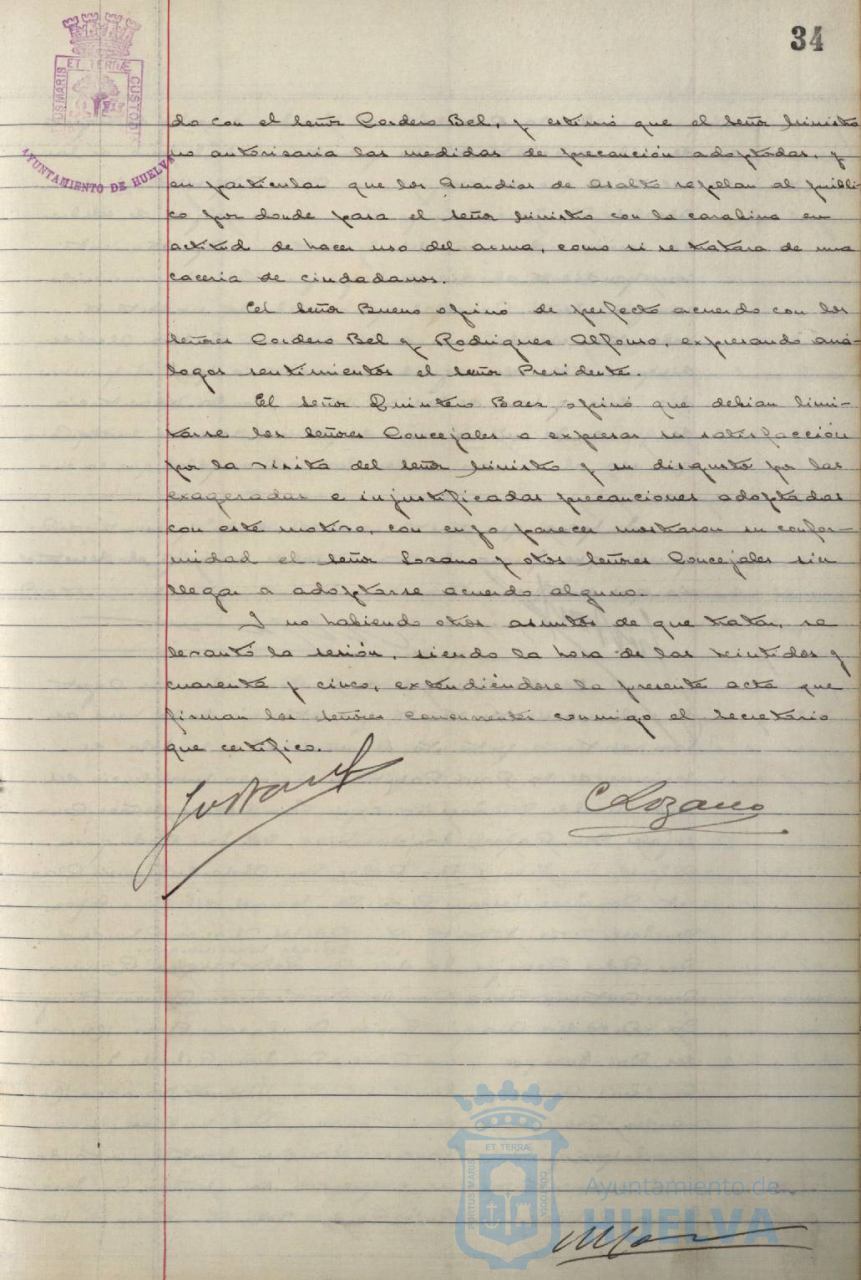 34
PORTUS MARIS ET TERRÆ CUSTODIA
AYUNTAMIENTO DE HUELVA
do con el señor Cordero Bel, y estimó que el señor Ministro
no autorizaria las medidas de precaución adoptadas, y
en particular que los Guardias de Asalto repelan al públi-
co por donde pasa el señor Ministro con la carabina en
actitud de hacer uso del arma, como si se tratara de una
caceria de ciudadanos.
El señor Bueno opinó de perfecto acuerdo con los
señores Cordero Bel y Rodriguez Alfonso, expresando aná-
logos sentimientos el señor Presidente.
El señor Quintero Baez opinó que debian limi-
tarse los señores Concejales a expresar su satisfacción
por la visita del señor Ministro y su disgusto por las
exageradas e injustificadas precauciones adoptadas
con este motivo, con cuyo parecer mostraron su confor-
midad el señor Lozano y otros señores Concejales sin
llegar a adoptarse acuerdo alguno.
Y no habiendo otros asuntos de que tratar, se
levantó la sesión, siendo la hora de las veintidos y
cuarenta y cinco, extendiéndose la presente acta que
firman los señores concurrentes conmigo el Secretario
que certifico.
C Lozano
PORTUS MARIS ET TERRÆ CUSTODIA
Ayuntamiento de
HUELVA